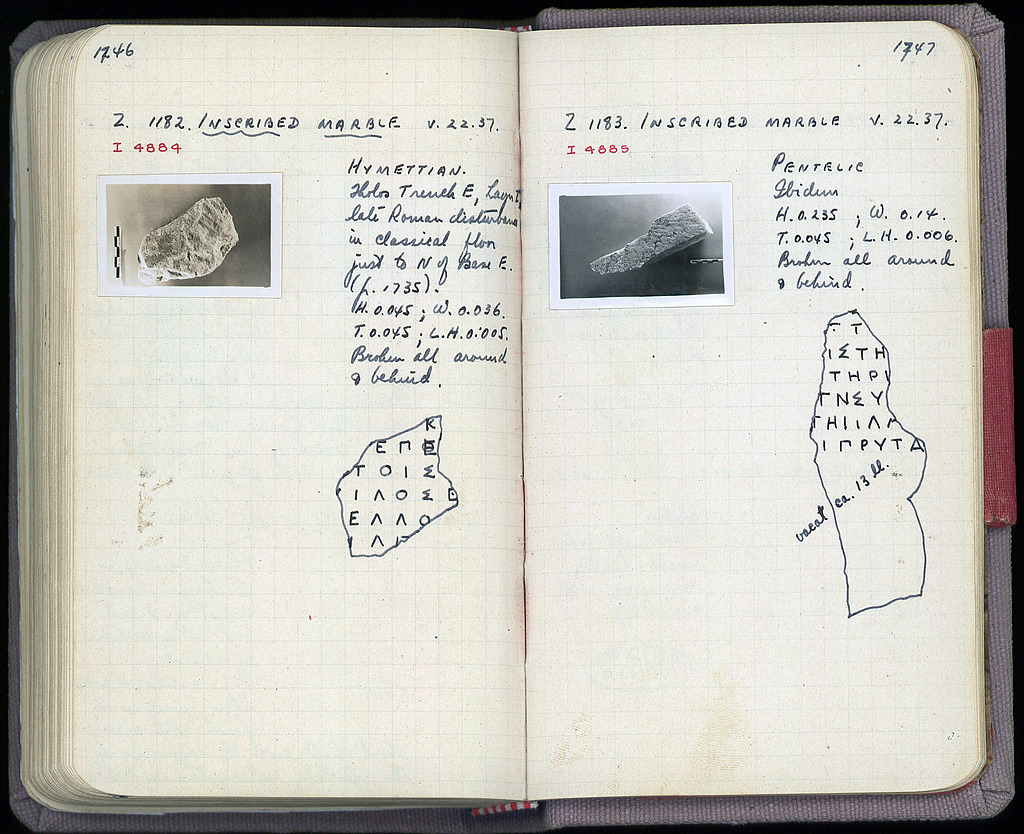 1746
Z. 1182. INSCRIBED MARBLE V. 22.37.
I 4884
HYMETTIAN.
Tholos Trench E, Layer
late Roman disturbance
in classical floor
just to N of Base E.
(p. 1735).
H. 0.045 ; W. 0.036.
T. 0.045 ; L.H. 0.005.
Broken all around
& behind.
Κ
Ε Π
Τ Ο Ι Σ
Ι Λ Ο Σ Ε
Ε Λ Λ Ο
1747
Z 1183. INSCRIBED MARBLE V. 22.37.
I 4885
PENTELIC
Ibidem
H. 0.235 ; W. 0.14.
T. 0.045 ; L.H. 0.006.
Broken all around
& behind.
Γ Τ
Ι Σ Τ Η
Τ Η Ρ Ι
Γ Ν Σ Υ
Ι Π Ρ Υ Τ Α
vacat ca. 13 ll.